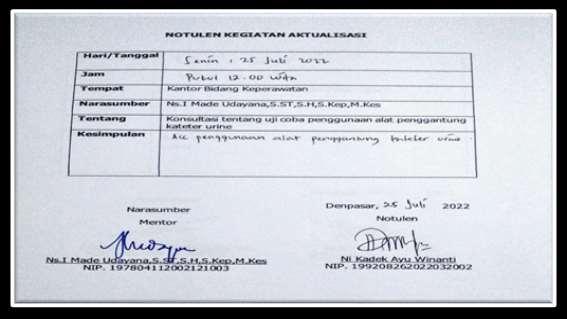 NOTULEN KEGIATAN AKTUALISASI
Hari/Tanggal Senin, 25 Juli 2022
Jam Pukul 12.00 WITA
Tempat Kantor Bidang Keperawatan
Narasumber Ns.I Made Udayana,S.ST,S.H,S.Kep,M.Kes
Tentang Konsultasi tentang uji coba penggunaan alat penggantung
kateter urine
Kesimpulan Acc penggunaan alat penggantung kateter urine.
Denpasar, 25 Juli 2022
Narasumber Notulen
Mentor
Ns.I Made Udayana,S.ST,S.H,S.Kep,M.Kes Ni Kadek Ayu Winanti
NIP. 197804112002121003 NIP. 199208262022032002